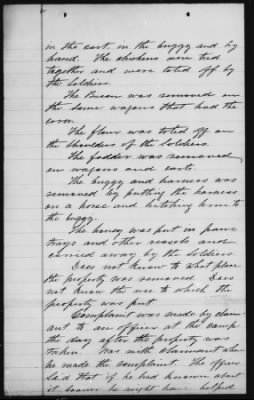 in the cart, in the buggy and by
hand. The chickens were tied
together and were toted off by
the soldiers.
The Bacon was removed on
the same wagons that had the
corn.
The flour was toted off on
the shoulders of the soldiers.
The fodder was removed
on wagons and carts.
The buggy and harness was
removed by putting the harness
on a horse and hitching horse to
the buggy.
The honey was put in pans
trays and other vessels and
carried away by the soldiers
Does not know to what place
the property was removed. Does
not know the use to which the
property was put
Complaint was made by claim-
ant to an officer at the camp
the day after the property was
taken. Was with claimant when
he made the complaint. The officer
said that if he had known about
it sooner he might have helped